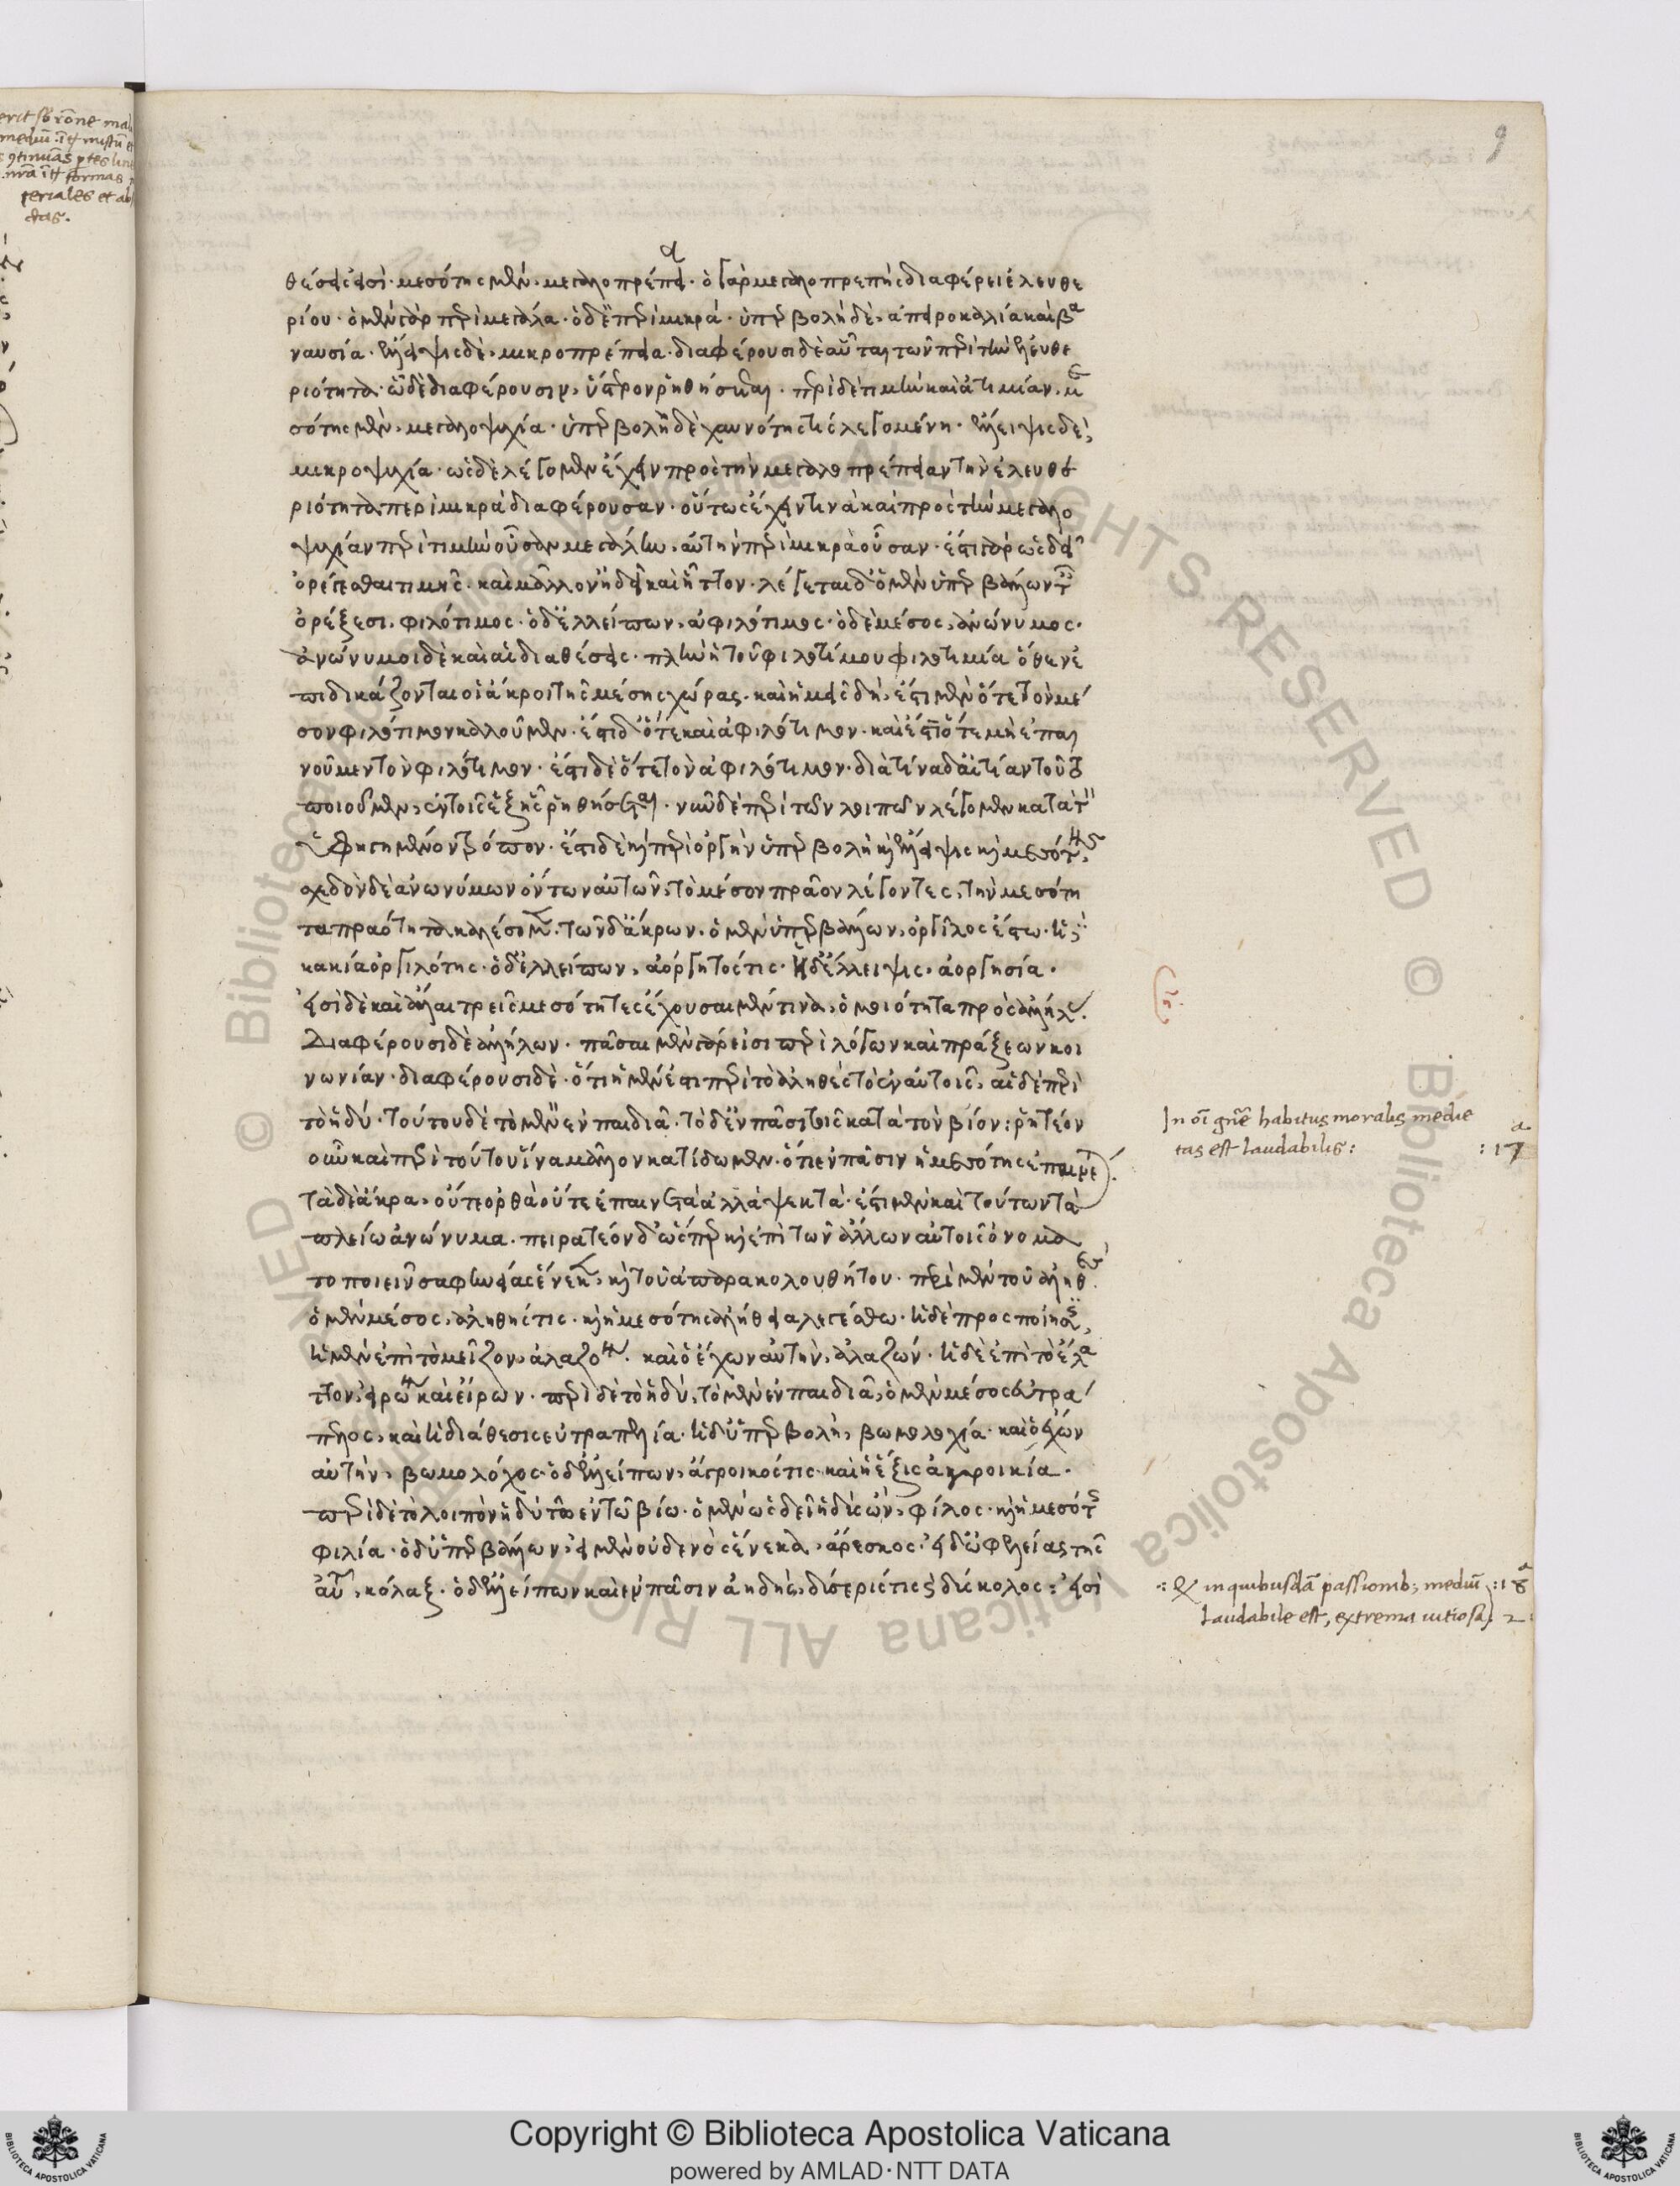 erit sō rōne ma
mediū
teriales et ab
ctas.
9
θέσεις εἰσὶ· μεσότης μὲν, μεγαλοπρέπεια· ὁ γὰρ μεγαλοπρεπὴς διαφέρει ἐλευθε
ρίου· ὁ μὲν γὰρ περὶ μεγάλα· ὁ δὲ περὶ μικρά· ὑπερβολὴ δὲ, ἀπειροκαλία καὶ βα
ναυσία· ἔλλειψις δὲ, μικροπρέπεια· διαφέρουσι δὲ αὗται τῶν περὶ τὴν ἐλευθε
ριότητα· ᾗ δὲ διαφέρουσιν, ὕστερον ῥηθήσεται· περὶ δὲ τιμὴν καὶ ἀτιμίαν, με
σότης μὲν, μεγαλοψυχία· ὑπερβολὴ δὲ χαυνότης τίς λεγομένη· ἔλλειψις δὲ,
μικροψυχία· ὡς δὲ λέγομεν ἔχειν πρὸς τὴν μεγαλοπρέπειαν τὴν ἐλευθε
ριότητα περὶ μικρὰ διαφέρουσαν· οὕτως ἔχειν τινὰ καὶ πρὸς τὴν μεγαλο
ψυχίαν περὶ τιμὴν οὖσαν μεγάλην, αὐτὴν περὶ μικρὰ οὖσαν· ἔστι γὰρ ὡς δεῖ
ὀρέγεσθαι τιμῆς· καὶ μᾶλλον ἢ δεῖ καὶ ἧττον· λέγεται δ' ὁ μὲν ὑπερβάλλων τ
ὀρέξεσι, φιλότιμος· ὁ δ' ἐλλείπων, ἀφιλότιμος· ὁ δὲ μέσος, ἀνώνυμος·
ἀνώνυμοι δὲ καὶ αἱ διαθέσεις· πλὴν ἡ τοῦ φιλοτίμου φιλοτιμία ὅθεν ἐ
πιδικάζονται οἱ ἄκροι τῆς μέσης χώρας· καὶ ἡμεῖς δὴ, ἔστι μὲν ὅτε τὸν μέ
σον φιλότιμον καλοῦμεν· ἔστι δ' ὅτε καὶ ἀφιλότιμον· καὶ ἔστι ὅτε μὲν ἐπαι
νοῦμεν τὸν φιλότιμον· ἔστι δὲ ὅτε τὸν ἀφιλότιμον· διὰ τίνα δ' αἰτίαν τοῦτο
ποιοῦμεν, ἐν τοῖς ἑξῆς ῥηθήσεται· νῦν δὲ περὶ τῶν λοιπῶν λέγομεν κατὰ τ
ὑφηγημένον τρόπον· ἔστι δὲ καὶ περὶ ὀργὴν ὑπερβολὴ καὶ ἔλλειψις καὶ μεσότης,
σχεδὸν δὲ ἀνωνύμων ὄντων αὐτῶν, τὸ μέσον πρᾶον λέγοντες, τὴν μεσότη
τα πραότητα καλέσομεν· τῶν δ' ἄκρων, ὁ μὲν ὑπερβάλλων, ὀργίλος ἔστω· ἡ δὲ
κακία ὀργιλότης· ὁ δ' ἐλλείπων, ἀόργητός τις· ἡ δ' ἔλλειψις, ἀοργησία·
εἰσὶ δὲ καὶ ἄλλαι τρεῖς μεσότητες ἔχουσαι μέν τινα, ὁμοιότητα πρὸς ἀλλήλ.
Διαφέρουσι δὲ ἀλλήλων· πᾶσαι μὲν γάρ εἰσι περὶ λόγων καὶ πράξεων κοι
νωνίαν· διαφέρουσι δὲ· ὅτι ἡ μέν ἐστι περὶ τὸ ἀληθὲς τὸ ἐν αὐτοῖς, αἱ δὲ περὶ
τὸ ἡδύ· τούτου δὲ τὸ μὲν ἐν παιδιᾷ· τὸ δ' ἐν πᾶσι τοῖς κατὰ τὸν βίον: ῥητέον
οὖν καὶ περὶ τούτου ἵνα μᾶλλον κατίδωμεν· ὅτι ἐν πᾶσιν ἡ μεσότης ἐπαινετ
τὰ δὲ ἄκρα, οὔτε ὀρθὰ οὔτε ἐπαινετὰ ἀλλὰ ψεκτά· ἔστι μὲν καὶ τούτων τὰ
πλείω ἀνώνυμα· πειρατέον δ' ὥσπερ καὶ ἐπὶ τῶν ἄλλων αὐτοῖς ὀνομα
τοποιεῖν σαφηνείας ἕνεκεν, καὶ τοῦ εὐπαρακολουθήτου· περὶ μὲν τοῦ ἀληθ
ὁ μὲν μέσος, ἀληθής τις· καὶ ἡ μεσότης ἀλήθεια λεγέσθω· ἡ δὲ προσποίησις,
ἡ μὲν ἐπὶ τὸ μεῖζον, ἀλαζο· καὶ ὁ ἔχων αὐτὴν, ἀλαζών· ἡ δὲ ἐπὶ τὸ ἔλα
ττον, εἰρων καὶ εἴρων· περὶ δὲ τὸ ἡδὺ, τὸ μὲν ἐν παιδιᾷ, ὁ μὲν μέσος εὐτρά
πελος, καὶ ἡ διάθεσις εὐτραπελία· ἡ δ' ὑπερβολὴ, βωμολοχία· καὶ ὁ ἔχων
αὐτὴν, βωμολόχος· ὁ δ' ἐλλείπων, ἄγροικός τις· καὶ ἡ ἕξις ἀγροικία·
περὶ δὲ τὸ λοιπὸν ἡδὺ τὸ ἐν τῷ βίῳ· ὁ μὲν ὡς δεῖ ἡδὺς ὢν, φίλος· καὶ ἡ μεσότης
φιλία· ὁ δ' ὑπερβάλλων, εἰ μὲν οὐδενὸς ἕνεκα, ἄρεσκος· εἰ δ' ὠφελείας τῆς
αὑτ, κόλαξ· ὁ δ' ἐλλείπων καὶ ἐν πᾶσιν ἀηδὴς, δύσερίς τις καὶ δύσκολος: εἰσὶ
In oī gnē habitus moralis medie
tas est laudabilis: : 17
:· Q in quibusdā passionib; mediū :18
laudabile est, extrema vitiosa. 2
Copyright © Biblioteca Apostolica Vaticana
powered by AMLAD·NTT DATA